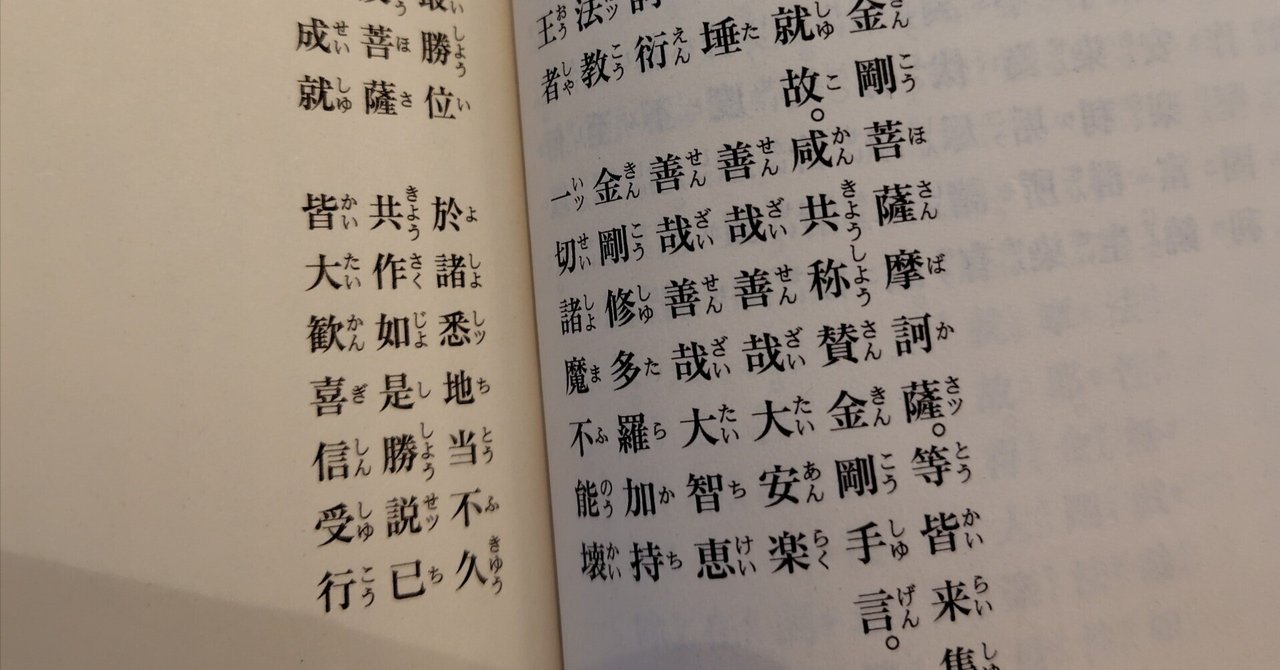 金剛菩薩摩訶薩。等皆来集
就故。咸共称賛金剛手言。
埵 善哉善哉大安楽
衍 善哉善哉大智恵
法教 金剛修多羅加持
王者 一切諸魔不能壊
勝位 於諸悉地当不久
菩薩 共作如是勝説已
成就 皆大歓喜信受行